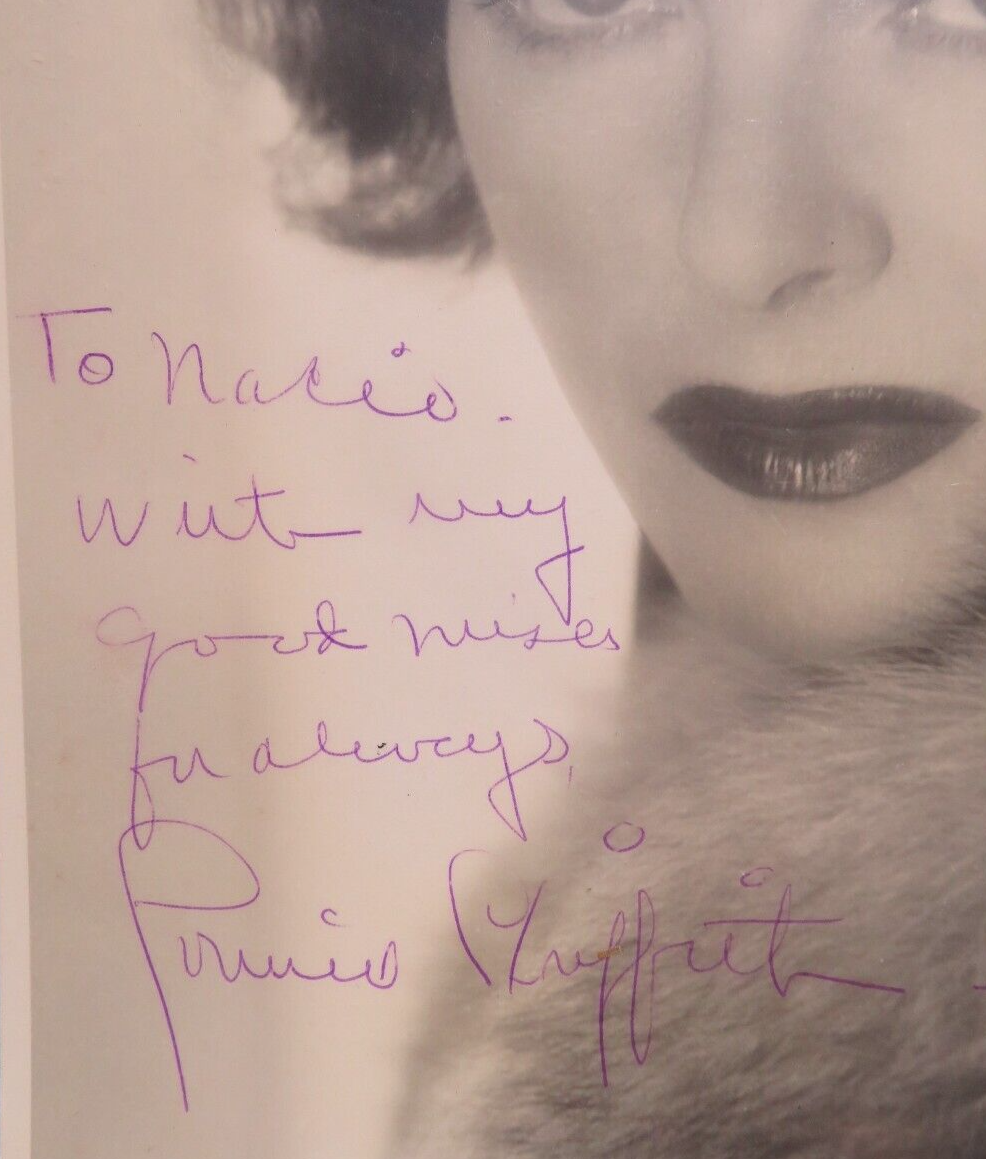 To Nacio.
With my
good wishes
for always,
Corinne Griffith